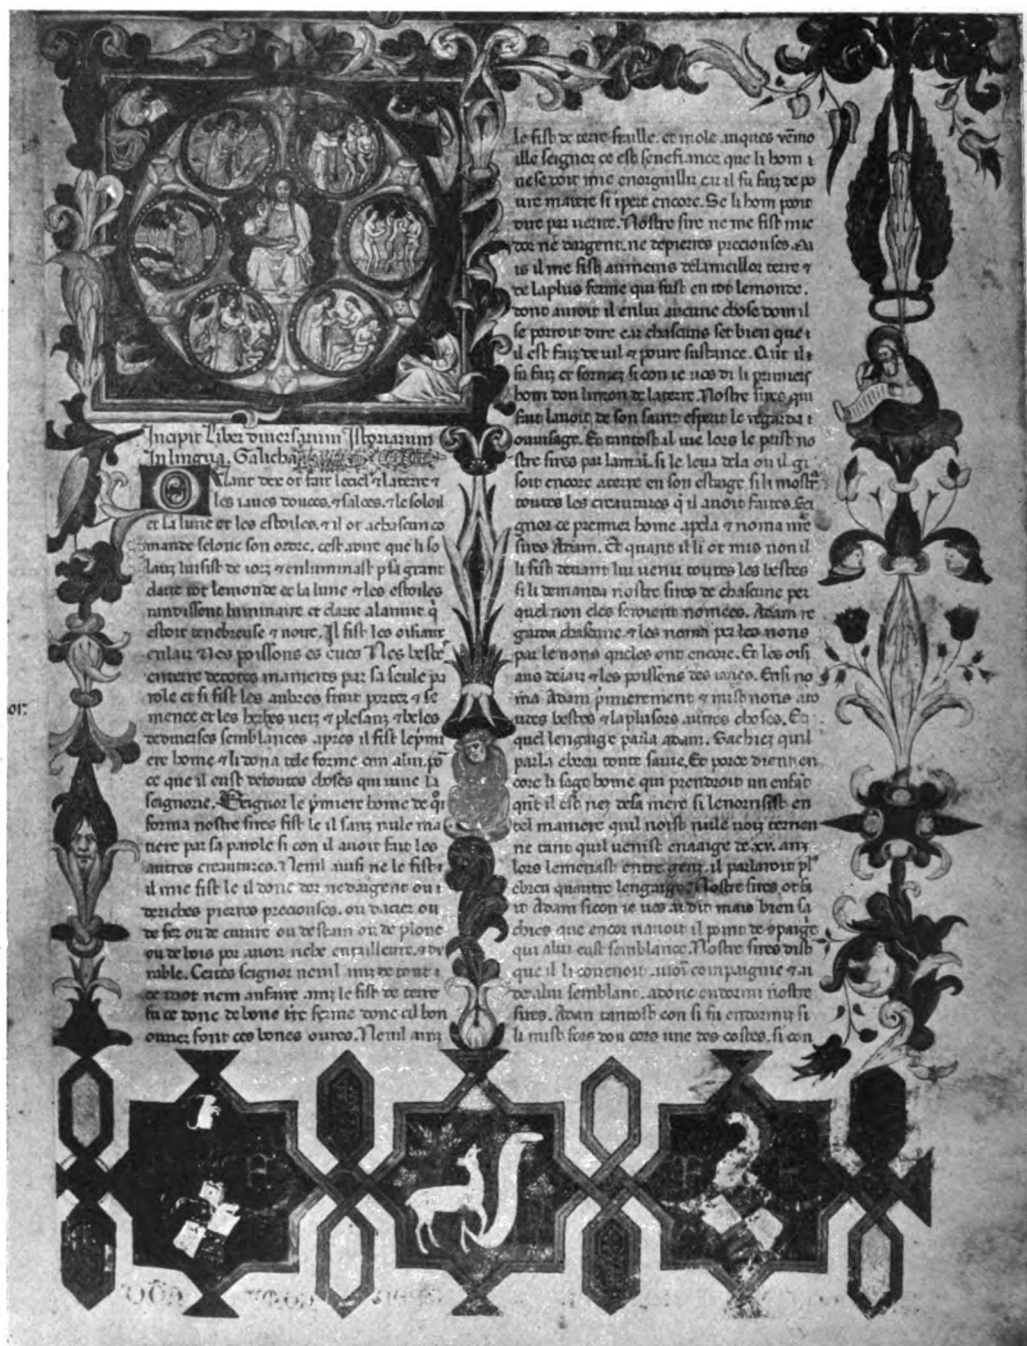 Incipit Liber diversarum Istoriarum
In lingua Galicha
Qant dex ot fait le ciel ⁊ la terre ⁊
les iaues douces ⁊ salees. ⁊ le soloil
et la lune et les estoiles. ⁊ il ot achascun co
mande selonc son ordre. cest a dire que li so
lauz luisist de iorz ⁊ enluminast p sa grant
clarte tot lemonde et la lune ⁊ les estoiles
randissent luminaire et clarte alanuit q̄
estoit tenebreuse ⁊ noire. Il fist les oisiaux
enlair ⁊ les poissons es eues ⁊ les bestes
enterre de totes manieres par sa seule pa
role et si fist les aubres fruit porter ⁊ se
mence et les herbes uerz ⁊ plesanz ⁊ beles
de diuerses semblances apres il fist le p̄mi
ere home ⁊ li dona tele forme com a lui. por
ce que il eust de toutes choses qui uiue la
seignorie. Seignor le p̄miere home de q̄i
forma nostre sires fist le il sanz nule ma
tiere par sa parole si con il auoit fait les
autres creatures. Nenil ausi ne le fist i
il mie fist le il donc dor ne dargent ou i
de riches pierres preciouses. ou dacier ou
de fer ou de cuiure ou destain ou de plonc
ou de bois por auoir riche entailleure. ⁊ du
rable. Certes seignor nenil anz de tout i
ce not nem anfaire. anz le fist de terre
fu ce donc de bone tre ferme donc cil bon
ourier font ces bones oures. Nenil anz
le fist de terre fraille. et mole. auques vermo
ille seignor ce est senefiance que li hom i
ne se doit mie enorguillir car il fu faiz de po
ure matire si i pert encore. Se li hom pout
dire par uerite. Nostre sire ne me fist mie
dor ne dargent. ne de pierres preciouses. Ma
is il me fist au meins de la meillor terre ⁊
de la plus ferme qui fust en tot lemonde.
donc auroit il en lui aucune chose dom il
se porroit dire car chascuns set bien que i
il est faiz de uil ⁊ poure sustance. Qant il i
fu faiz et formez si con ie uos di li primiers
hom dou limon de la terre. Nostre sires qui
fait lauoit de son saint esperit le regarda i
ou uisage. Et tantost il uie lors le prist no
stre sires par la main. si le leua de la ou il gi
soit encore a terre en son estage. si li mostra
toutes les creatures q̄ il auoit faites. Sei
gnor ce premier home apela ⁊ noma nre
sires Adam. Et quant il li ot mis non il
li fist deuant lui uenir toutes les bestes
si li demanda nostre sires de chascune per
quel non eles seroient nomees. Adam re
garda chascune. ⁊ les noma per les nons
par le nons queles ont encore. Et les oisi
aus de lair ⁊ les poissons des iaues. Ensi no
ma Adam p̄mierement ⁊ mist nons a to
utes bestes ⁊ la plusors autres choses. En
quel lengaige parla adam. Sachiez quil
parla ebreu toute sauie. Et por ce dient en
core li sage home qui prendroit un enfant
qnt il est nez de sa mere si lenorrisist en
tel maniere quil noist nulle uoiz terrien
ne tant quil uenist en aaige de .xv. anz
lors le menast entre gent. il parlaroit pl'
ebreu quautre lengaige. Nostre sires ot fa
it Adam si con ie uos ai dit mais bien sa
chies que encor nauoit il point de conpaigne
qui a lui eust semblance. Nostre sires dist
que il li couenoit auoir compaignie ⁊ ai
de a lui semblant. adonc endormi nostre
sires. Adan tantost con si fu endormiz si
li mist fors dou cors une des costes. si con